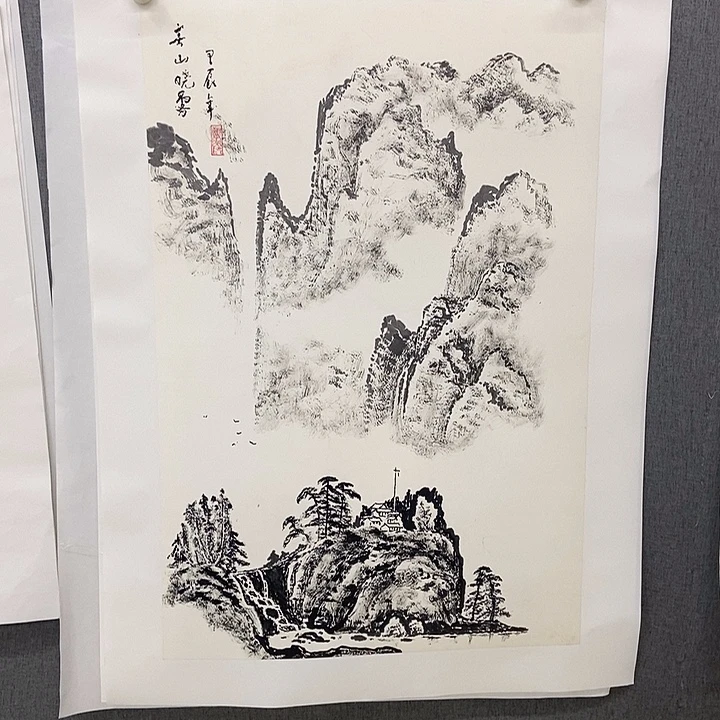 春山晓雾
甲辰年